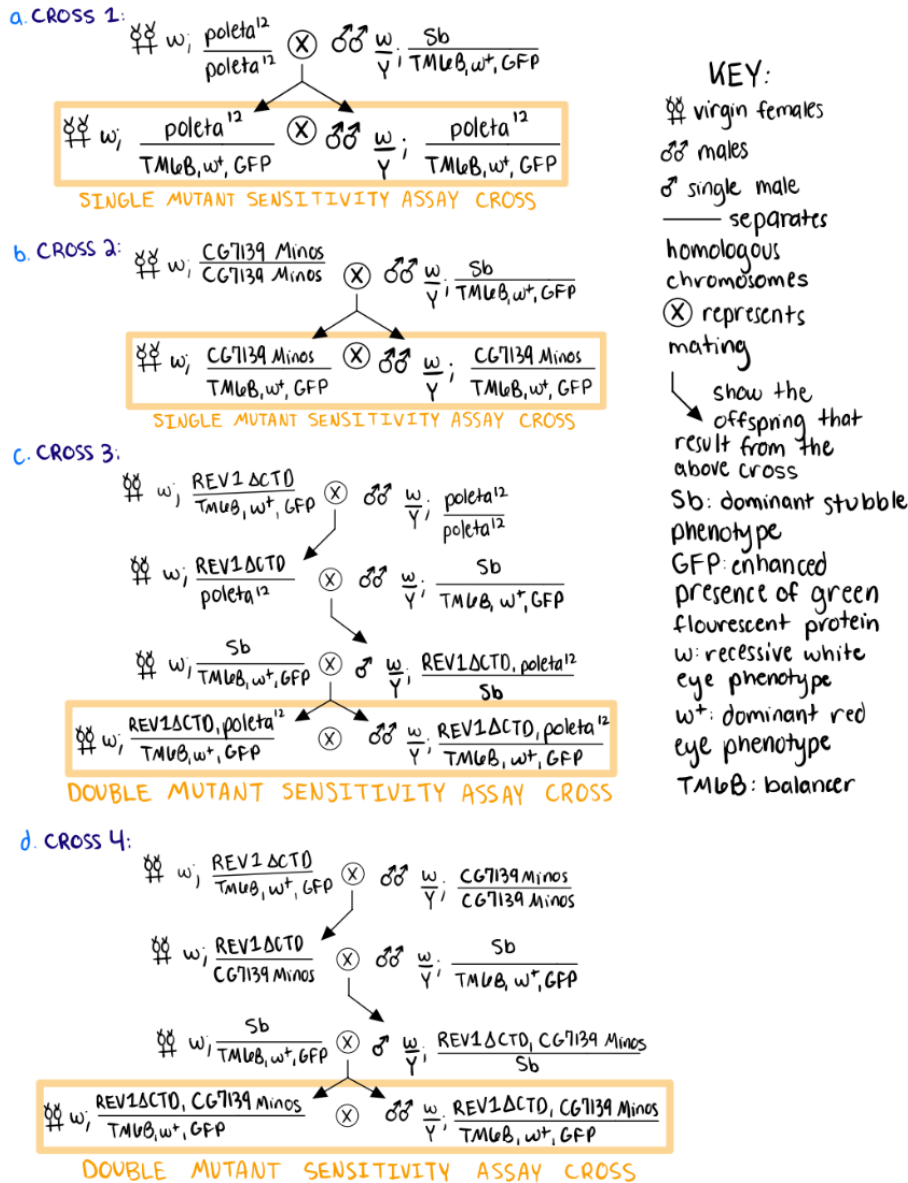 a. CROSS 1:
w; poleta¹²/poleta¹² ⊗ ♂♂ w/Y; Sb/TM6B, w⁺, GFP
w; poleta¹²/TM6B, w⁺, GFP ⊗ ♂♂ w/Y; poleta¹²/TM6B, w⁺, GFP
SINGLE MUTANT SENSITIVITY ASSAY CROSS
b. CROSS 2:
w; CG7139 Minos/CG7139 Minos ⊗ ♂♂ w/Y; Sb/TM6B, w⁺, GFP
w; CG7139 Minos/TM6B, w⁺, GFP ⊗ ♂♂ w/Y; CG7139 Minos/TM6B, w⁺, GFP
SINGLE MUTANT SENSITIVITY ASSAY CROSS
c. CROSS 3:
w; REV1ΔCTD/TM6B, w⁺, GFP ⊗ ♂♂ w/Y; poleta¹²/poleta¹²
w; REV1ΔCTD/poleta¹² ⊗ ♂♂ w/Y; Sb/TM6B, w⁺, GFP
w; Sb/TM6B, w⁺, GFP ⊗ ♂ w/Y; REV1ΔCTD, poleta¹²/Sb
w; REV1ΔCTD, poleta¹²/TM6B, w⁺, GFP ⊗ ♂♂ w/Y; REV1ΔCTD, poleta¹²/TM6B, w⁺, GFP
DOUBLE MUTANT SENSITIVITY ASSAY CROSS
d. CROSS 4:
w; REV1ΔCTD/TM6B, w⁺, GFP ⊗ ♂♂ w/Y; CG7139 Minos/CG7139 Minos
w; REV1ΔCTD/CG7139 Minos ⊗ ♂♂ w/Y; Sb/TM6B, w⁺, GFP
w; Sb/TM6B, w⁺, GFP ⊗ ♂ w/Y; REV1ΔCTD, CG7139 Minos/Sb
w; REV1ΔCTD, CG7139 Minos/TM6B, w⁺, GFP ⊗ ♂♂ w/Y; REV1ΔCTD, CG7139 Minos/TM6B, w⁺, GFP
DOUBLE MUTANT SENSITIVITY ASSAY CROSS
KEY:
virgin females
♂♂ males
♂ single male
— separates
homologous
chromosomes
⊗ represents
mating
show the
offspring that
result from the
above cross
Sb: dominant stubble
phenotype
GFP: enhanced
presence of green
flourescent protein
w: recessive white
eye phenotype
w⁺: dominant red
eye phenotype
TM6B: balancer